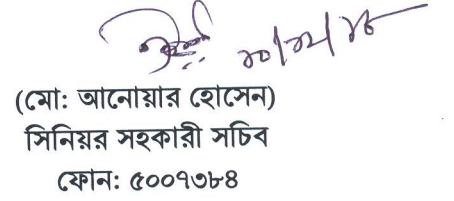 (মো: আনোয়ার হোসেন)
সিনিয়র সহকারী সচিব
ফোন: ৫০০৭৩৮৪